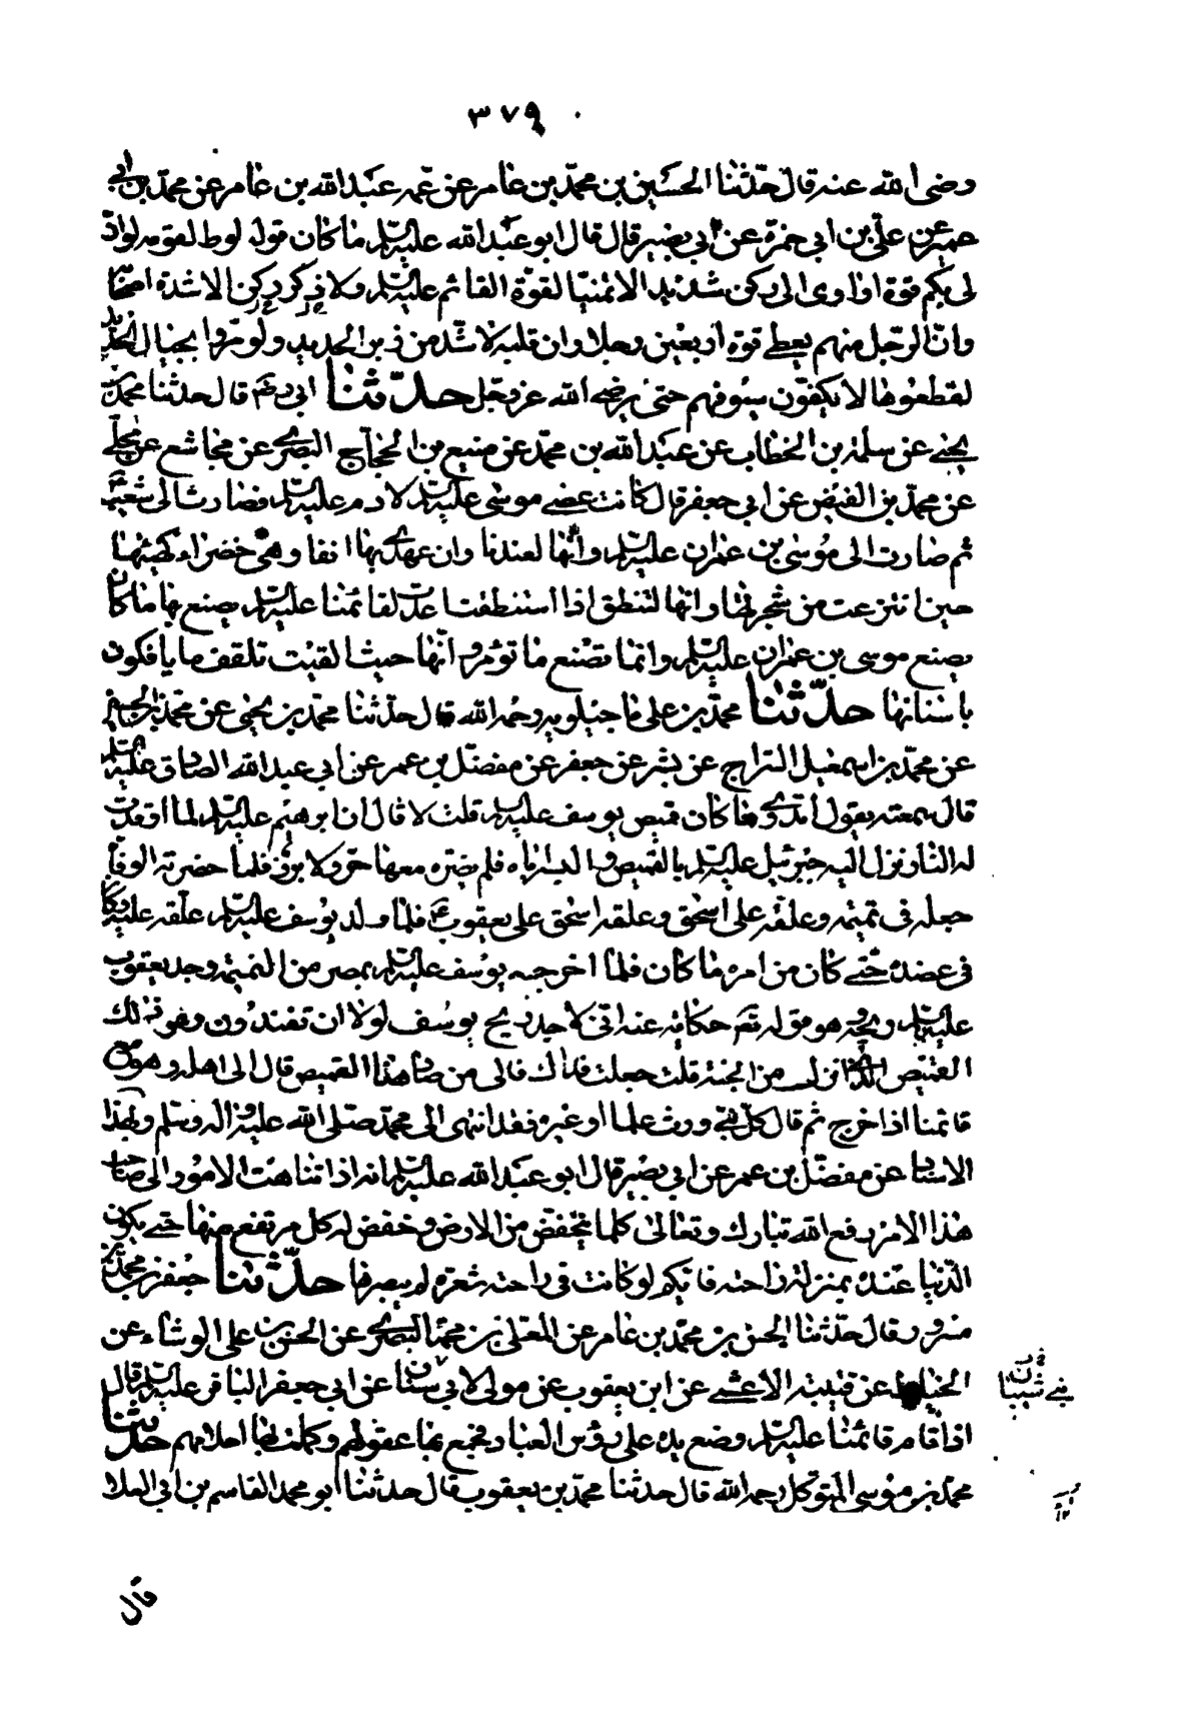 ٣٧٩
رضى الله عنه قال حدّثنا الحسين بن محمّد بن عامر عن عمه عبد الله بن عامر عن محمّد بن ابى
عمير عن علىّ بن ابى حمزة عن ابى بصير قال قال ابو عبد الله عليه السلم ما كان قول لوط لقومه لو انّ
لى بكم قوة او اوى الى ركن شديد الا تمنيا لقوّة القائم عليه السلم ولا ذكر ركن الا شدة اصحا
وانّ الرّجل منهم يعطى قوة اربعين رجلا وان قلبه لاشدّ من زبر الحديد ولو مرّوا بجبال الحديد
لقطعوها لا يكفّون سيوفهم حتى يرضى الله عزوجل حدّثنا ابى ره قال حدثنا محمد بن
يحيى عن سلمة بن الخطاب عن عبد الله بن محمّد عن منيع بن الحجاج البصرى عن مجاشع عن معلّى
عن محمّد بن الفيض عن ابى جعفر قال كانت عصى موسى عليه السلم لادم عليه السلم فصارت الى شعيب
ثم صارت الى موسى بن عمران عليه السلم وانّها لعندنا وان عهدى بها انفا وهى خضراء كهيئتها
حين انتزعت من شجرتها وانها لتنطق اذا استنطقت اعدت لقائمنا عليه السلم يصنع بها ما كان
يصنع موسى بن عمران عليه السلم وانّما تصنع ما تؤمر وانّها حيث القيت تلقف ما يافكون
باسنانها حدّثنا محمّد بن على ماجيلويه رحمه الله قال حدّثنا محمّد بن يحيى عن محمّد بن الحسين
عن محمّد بن اسمعيل السّراج عن بشر عن جعفر عن مفضّل بن عمر عن ابى عبد الله الصادق عليه السلم
قال سمعته يقول اتدرى ما كان قميص يوسف عليه السلم قلت لا قال ان ابرهيم عليه السلم لما اوقدت
له النار نزل اليه جبرئيل عليه السلم بالقميص والبسه اياه فلم يضره معها حرّ ولا برد فلما حضرته الوفاة
جعله فى تميمة وعلقه على اسحق وعلقه اسحق على يعقوب ع فلما ولد يوسف عليه السلم علقه عليه وكان
فى عضده حتى كان من امره ما كان فلما اخرجه يوسف عليه السلم بمصر من التميمة وجد يعقوب
عليه السلم ريحه وهو قوله تع حكاية عنه انى لاجد ريح يوسف لولا ان تفندون وهو ذلك
القميص الذى انزل من الجنة قلت جعلت فداك فالى من صار هذا القميص قال الى اهله وهو مع
قائمنا اذا خرج ثم قال كلّ نبى ورث علما او غيره فقد انتهى الى محمّد صلى الله عليه واله وسلم وبهذا
الاسناد عن مفضّل بن عمر عن ابى بصير قال ابو عبد الله عليه السلم انه اذا تناهت الامور الى صاحب
هذا الامر رفع الله تبارك وتعالى كلما نخفض من الارض وخفض له كل مرتفع منها حتى يكون
الدّنيا عنده بمنزلة راحته فايكم لو كانت فى راحته شعرة لم يبصرها حدّثنا جعفر بن محمّد بن
مسرور قال حدّثنا الحسين بن محمّد بن عامر عن المعلى بن محمّد البصرى عن الحسن بن على الوشاء عن
الحناط عن قتيبة الاعشى عن ابن يعقوب عن مولى لابى سنان عن ابى جعفر الباقر عليه السلم قال
بنى شيبان
اذا قام قائمنا عليه السلم وضع يده على رؤس العباد فجمع بها عقولهم وكملت بها احلامهم حدّثنا
محمّد بن موسى المتوكل رحمه الله قال حدثنا محمّد بن يعقوب قال حدثنا ابو محمد القاسم بن ابى العلا
قال